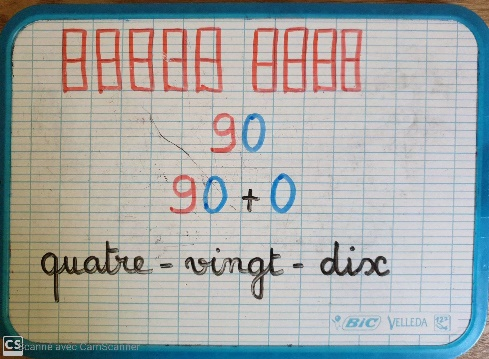 90
90 + 0
quatre - vingt - dix
BIC VELLEDA
CS Scanné avec CamScanner